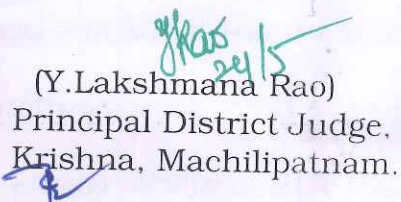 YRao
24/5
(Y.Lakshmana Rao)
Principal District Judge,
Krishna, Machilipatnam.